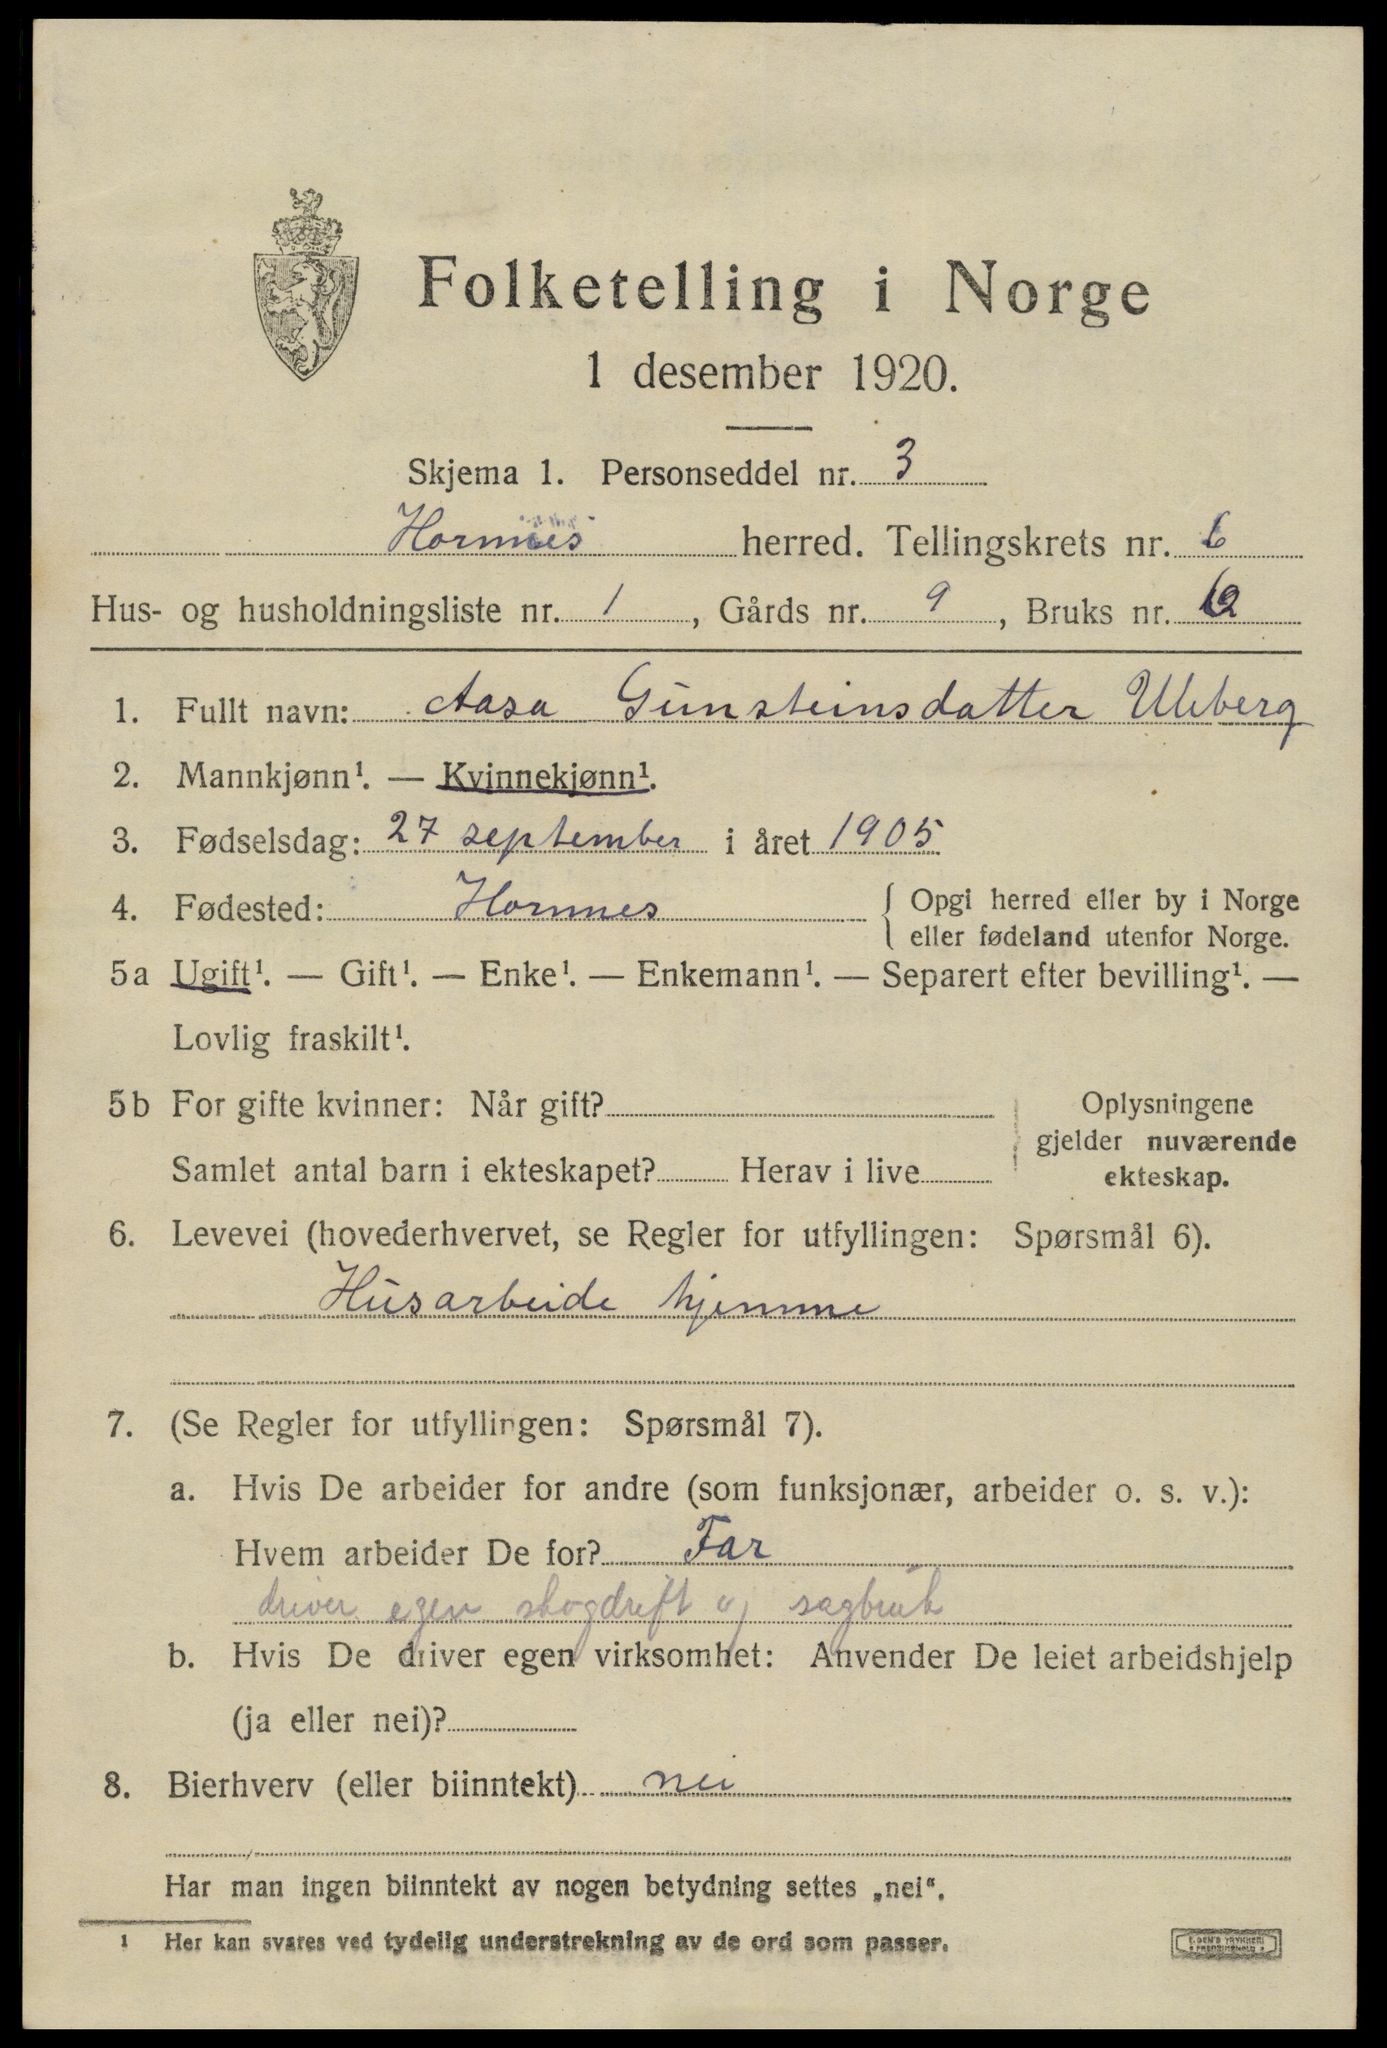 Folketelling i Norge
1 desember 1920.
Skjema 1. Personseddel nr. 3
Hornnes herred. Tellingskrets nr. 6
Hus- og husholdningsliste nr. 1, Gårds nr. 9, Bruks nr.
1. Fullt navn: Aasa Gunsteinsdatter Uleberg
2. Mannkjønn¹. — Kvinnekjønn¹.
3. Fødselsdag: 27 september i året 1905
4. Fødested: Hornnes { Opgi herred eller by i Norge
eller fødeland utenfor Norge.
5a Ugift¹. — Gift¹. — Enke¹. — Enkemann¹. — Separert efter bevilling¹. —
Lovlig fraskilt¹.
5b For gifte kvinner: Når gift? Oplysningene
gjelder nuværende
Samlet antal barn i ekteskapet? Herav i live ekteskap.
6. Levevei (hovederhvervet, se Regler for utfyllingen: Spørsmål 6).
Husarbeide hjemme
7. (Se Regler for utfyllingen: Spørsmål 7).
a. Hvis De arbeider for andre (som funksjonær, arbeider o. s. v.):
Hvem arbeider De for? Far
driver egen skogdrift og sagbruk
b. Hvis De driver egen virksomhet: Anvender De leiet arbeidshjelp
(ja eller nei)?
8. Bierhverv (eller biinntekt) nei
Har man ingen biinntekt av nogen betydning settes „nei“.
1 Her kan svares ved tydelig understrekning av de ord som passer.